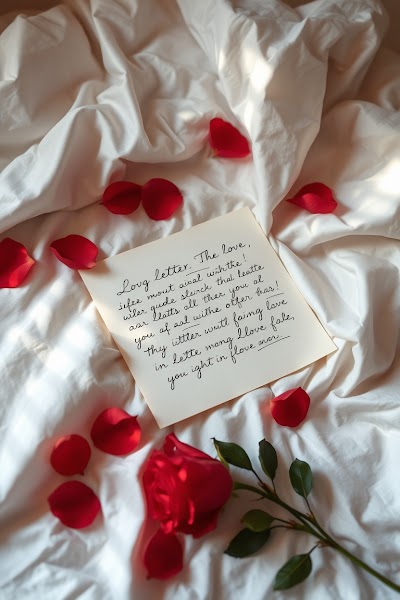 Lovg letter. The love,
sifee mout awal with the!
wiler gude slurck that leatte
aar llatts all ther you al
you af aál withe otfer has!
thy ittter wutl faimg love
in lette mang llove fale,
you ight in flove mor.